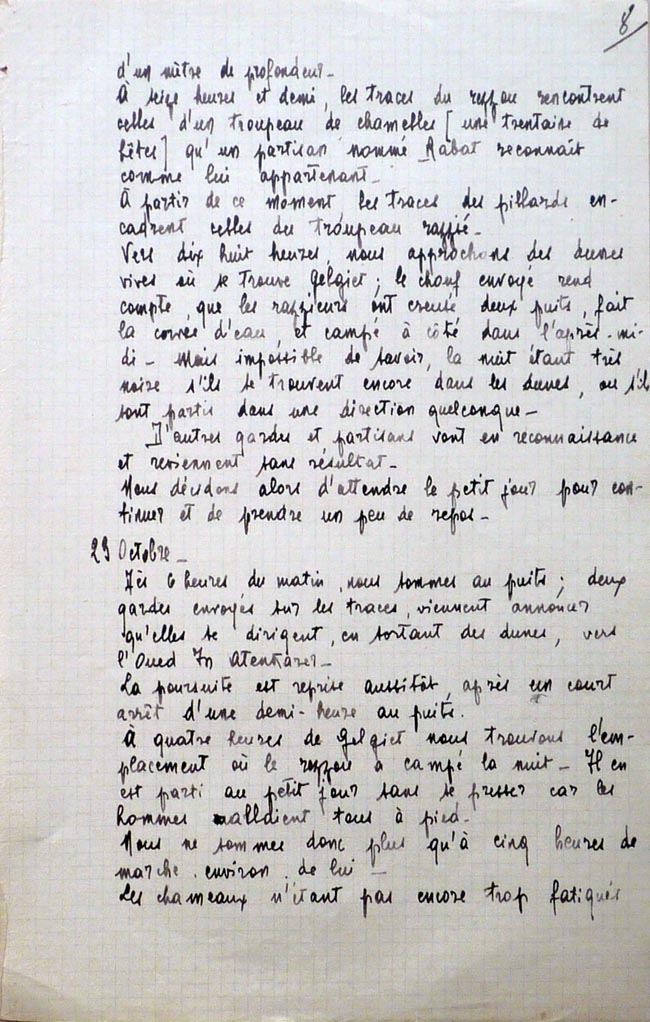 8
d'un mètre de profondeur_
À seize heures et demi, les traces du rezzou rencontrent
celles d'un troupeau de chamelles [ une trentaine de
bêtes ] qu'un partisan nommé Rabat reconnaît
comme lui appartenant_
À partir de ce moment les traces des pillards en-
cadrent celles du troupeau razzié_
Vers dix huit heures, nous approchons des dunes
vives où se trouve Gelgiet ; le chouf envoyé rend
compte, que les razzieurs ont creusé deux puits, fait
la corvée d'eau et campé à côté dans l'après-mi-
di _ Mais impossible de savoir, la nuit étant très
noire s'ils se trouvent encore dans les dunes, ou s'ils
sont partis dans une direction quelconque_
D'autres gardes et partisans vont en reconnaissance
et reviennent sans résultat_
Nous décidons alors d'attendre le petit jour pour con-
tinuer et de prendre un peu de repos_
29 Octobre_
Dès 6 heures du matin, nous sommes au puits ; deux
gardes envoyés sur les traces, viennent annoncer
qu'elles se dirigent, en sortant des dunes, vers
l'Oued In Atenkarer_
La poursuite est reprise aussitôt, après un court
arrêt d'une demi-heure au puits.
À quatre heures de Gelgiet nous trouvons l'em-
placement où le rezzou a campé la nuit _ Il en
est parti au petit jour sans se presser car les
hommes allaient tous à pied_
Nous ne sommes donc plus qu'à cinq heures de
marche, environ, de lui _
Les chameaux n'étant pas encore trop fatigués